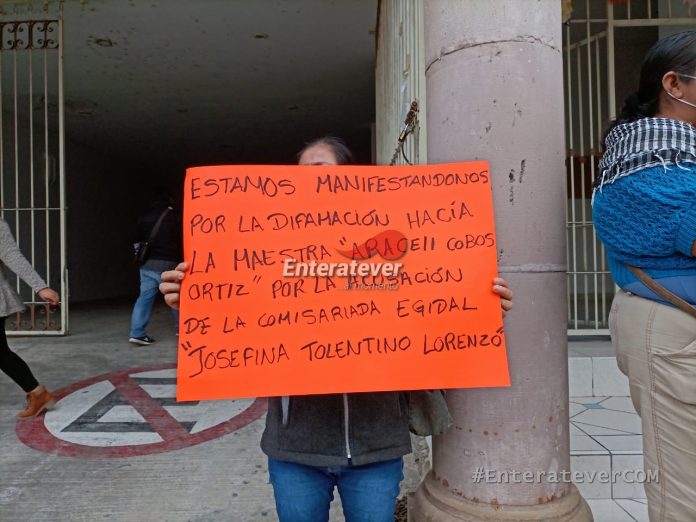 ESTAMOS MANIFESTANDONOS
POR LA DIFAMACIÓN HACÍA
LA MAESTRA "ARACEII COBOS
ORTIZ" POR LA ACUSACIÓN
DE LA COMISARIADA EGIDAL
"JOSEFINA TOLENTINO LORENZO"
Enteratever
al momento
#EnterateverCOM
E